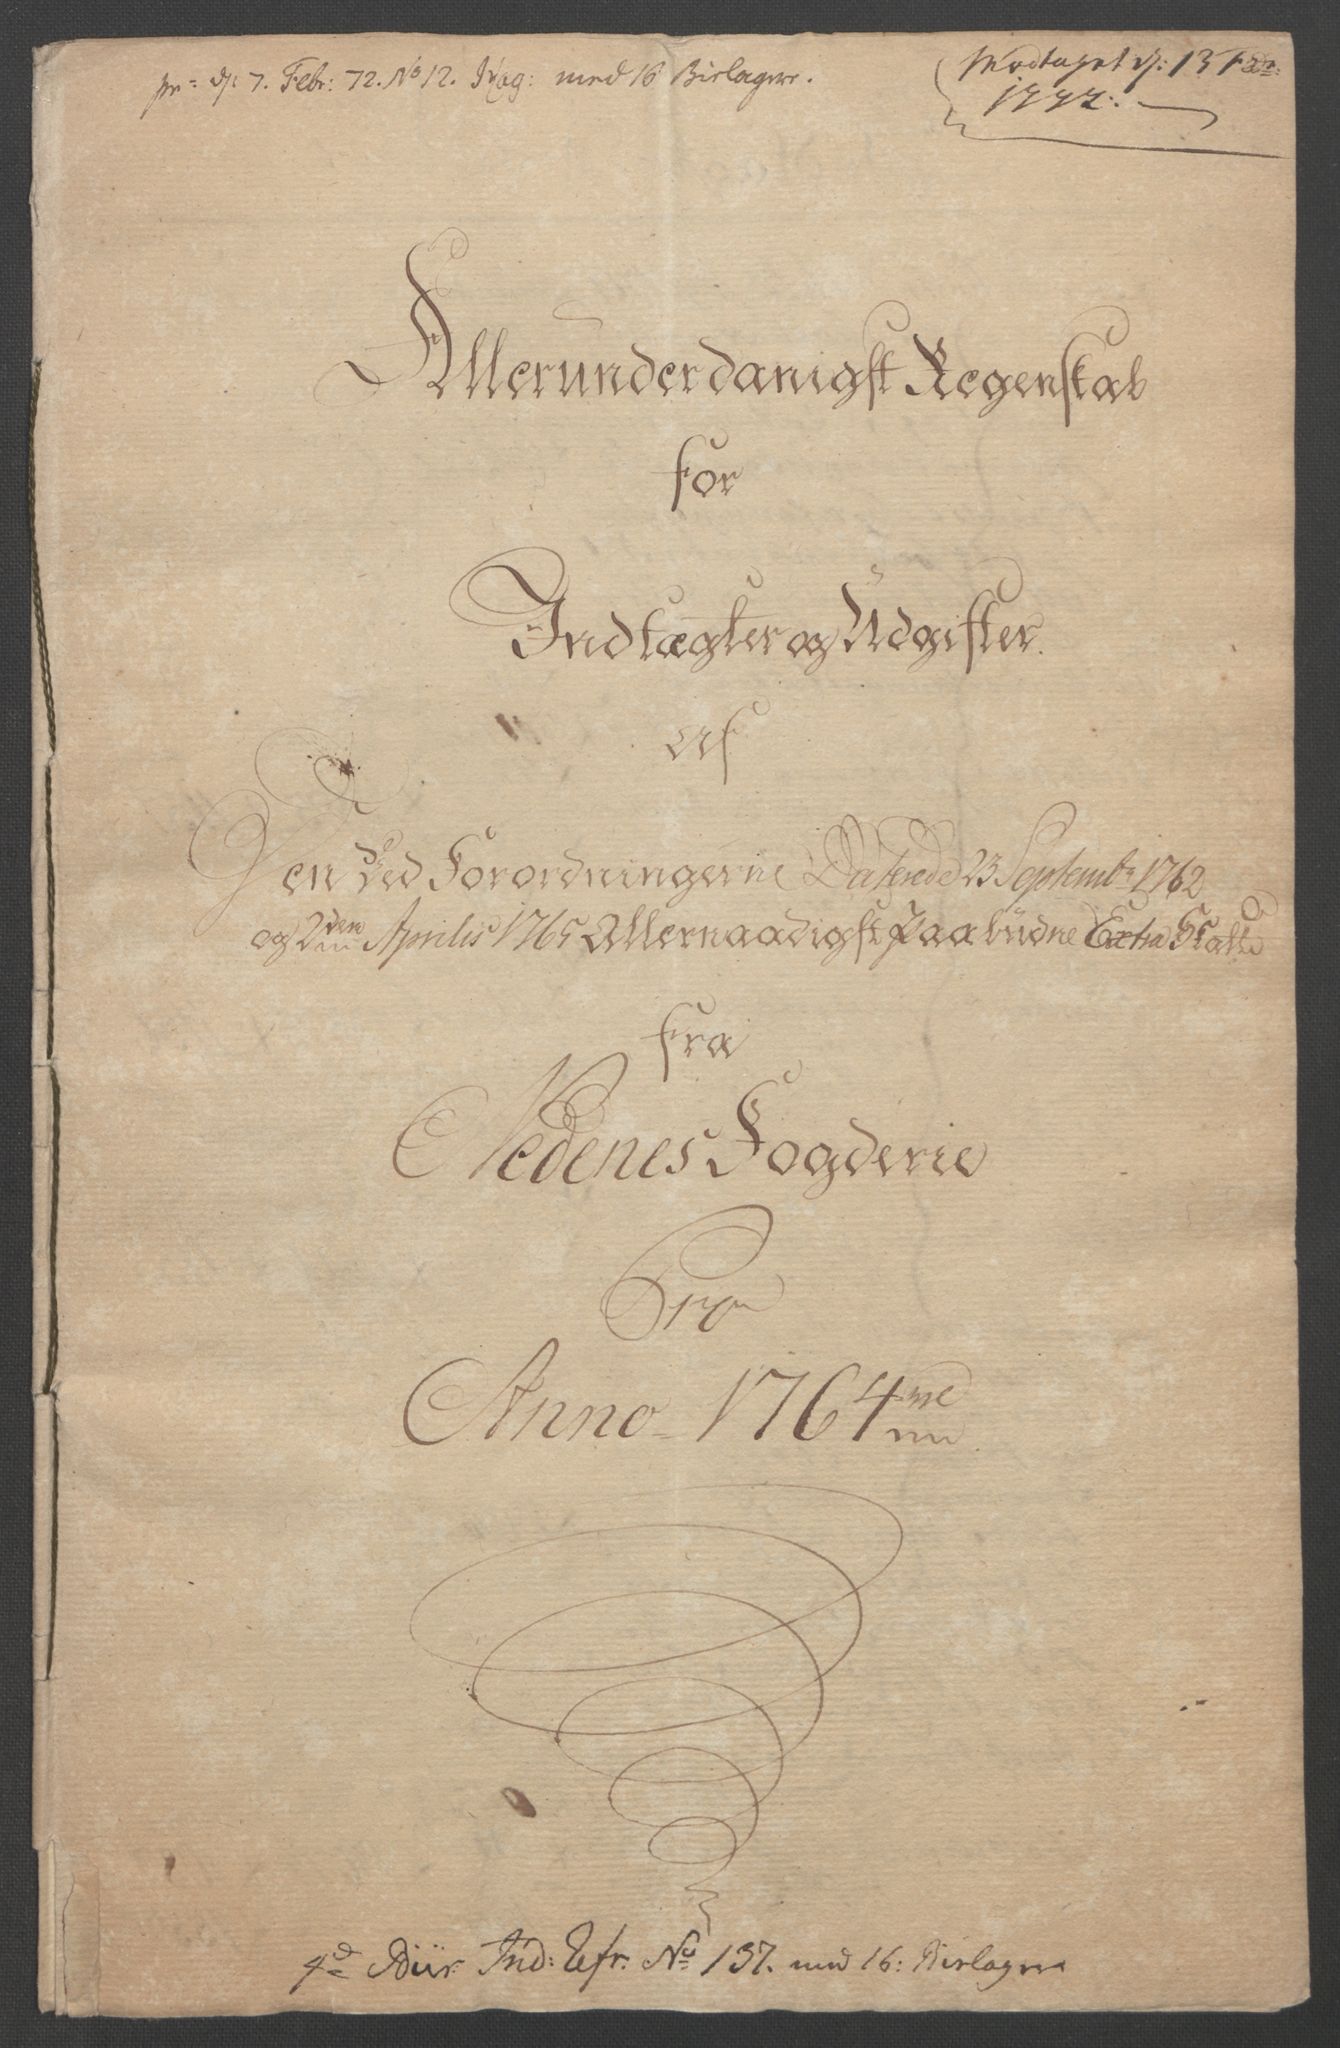 pr: d: 7. Febr: 72. No 12. med 16 Bielagere.
Modtaget d: 13 Febr:
1772.
Allerunderdanigst Regenskab
for
Indtægter og Udgifter.
af
Den ved Forordningerne Daterede 23 Septembr 1762
og 2den Aprilis 1765 Allernaadigst Paabudne Extra Skatt
fra
Nedenes Fogderie
Pro
Anno 1764
4d Ind: Efr. No 137. med 16: Bielagere